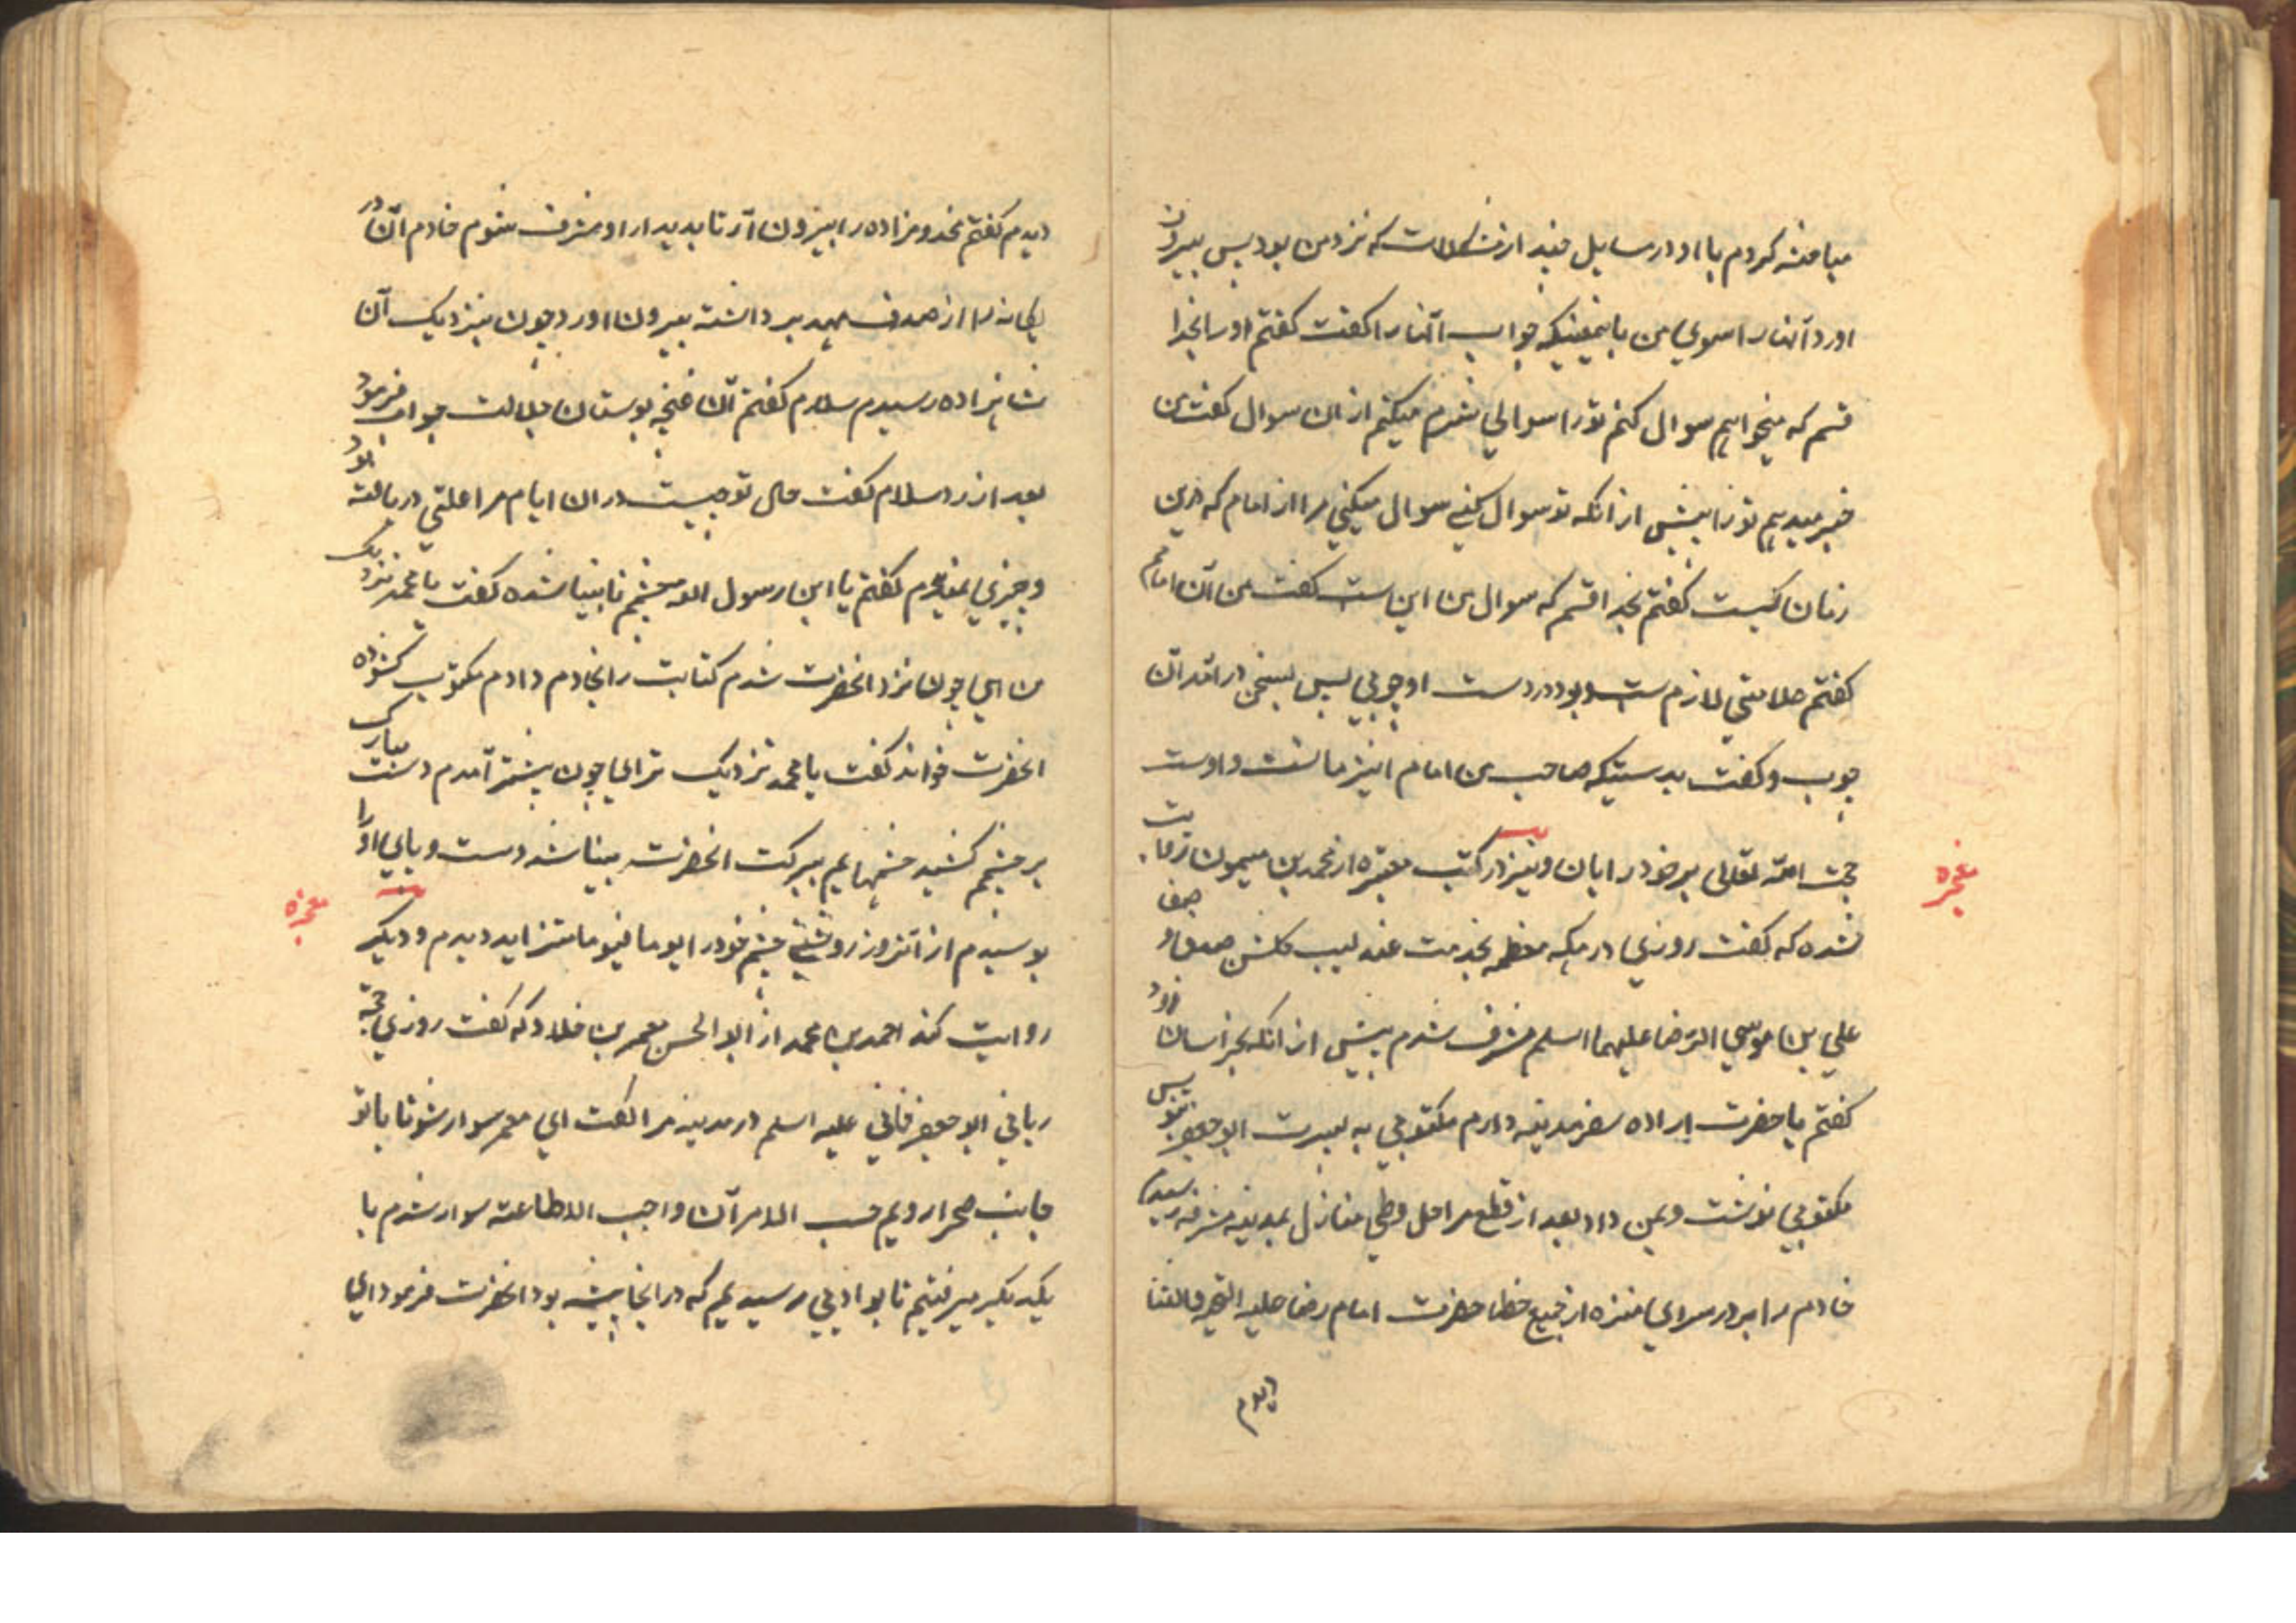 مباحثه کردم با او در مسایل چند از مشکلات که نزد من بود پس بیرون
اورد آنها را سوی من با نمعنیکه جواب آنها را کفت کفتم او را بخدا
قسم که میخواهم سوال کنم تو را سوالی شرم میکنم از ان سوال کفت من
خبر میدهم تو را پیش از انکه تو سوال کنے سوال میکنی مرا از امام که درین
زمان کیست کفتم بخدا قسم که سوال من این است کفت من آن امامم
کفتم علامتی لازم ست و بود در دست او چوبی پس بسخن در آمد آن
چوب و کفت بدرستیکه صاحب من امام اینزمانست و اوست
حجت الله تعالی بر خود در ایان و نیز در کتب معتبره از محمد بن میمون روایت
معجزه
شده که کفت روزی در مکه معظمه بخدمت عندلیب کلشن صدق و صفا
علی بن موسی الرضا علیهما اسلم مشرف شدم پیش از انکه بخراسان رود
کفتم یا حضرت اراده سفر مدینه دارم مکتوبی به پسرت ابو جعفر بنویس
مکتوبی نوشت و بمن داد بعد از قطع مراحل و طی منازل بمدینه مشرفه رسیدم
خادم را بر در سرای منزه از جمیع خطا حضرت امام رضا علیه التحیه والثنا
دیدم
دیدم کفتم مخدومزاده را بیرون آر تا بدیدار او مشرف شوم خادم آن در
یکانه را از صدف مهد برداشته بیرون اورد چون بنزدیک آن
شاهزاده رسیدم سلام کفتم آن غنچه بوستان جلالت جواب فرمود
بعد از رد سلام کفت حال تو چیست در ان ایام مرا علتی دریافته بود
و چیزی نمیدیدم کفتم یا ابن رسول الله چشمم نابینا شده کفت یا محمد نزدیک
من ای چون نزد انحضرت شدم کتابت را بخادم دادم مکتوب کشوده
انحضرت خواند کفت یا محمد نزدیک تر ای چون پیشتر آمدم دست مبارک
بر چشمم کشید چشمهایم ببرکت انحضرت بینا شد دست و پای او را
بوسیدم از آنروز روشنی چشم خود را یوما فیوما متزاید دیدم و دیکر
معجزه
روایت کند احمد بن محمد از ابو الحسن معمر بن خلاد که کفت روزی حجة
ربانی ابو جعفر ثانی علیه اسلم در مدینه مرا کفت ای معمر سوار شو تا با تو
جانب صحرا رویم حسب الامر آن واجب الاطاعته سوار شدم با
یکدیکر میرفتیم تا بوادیی رسیدیم که در انجا پشته بود انحضرت فرمود ای